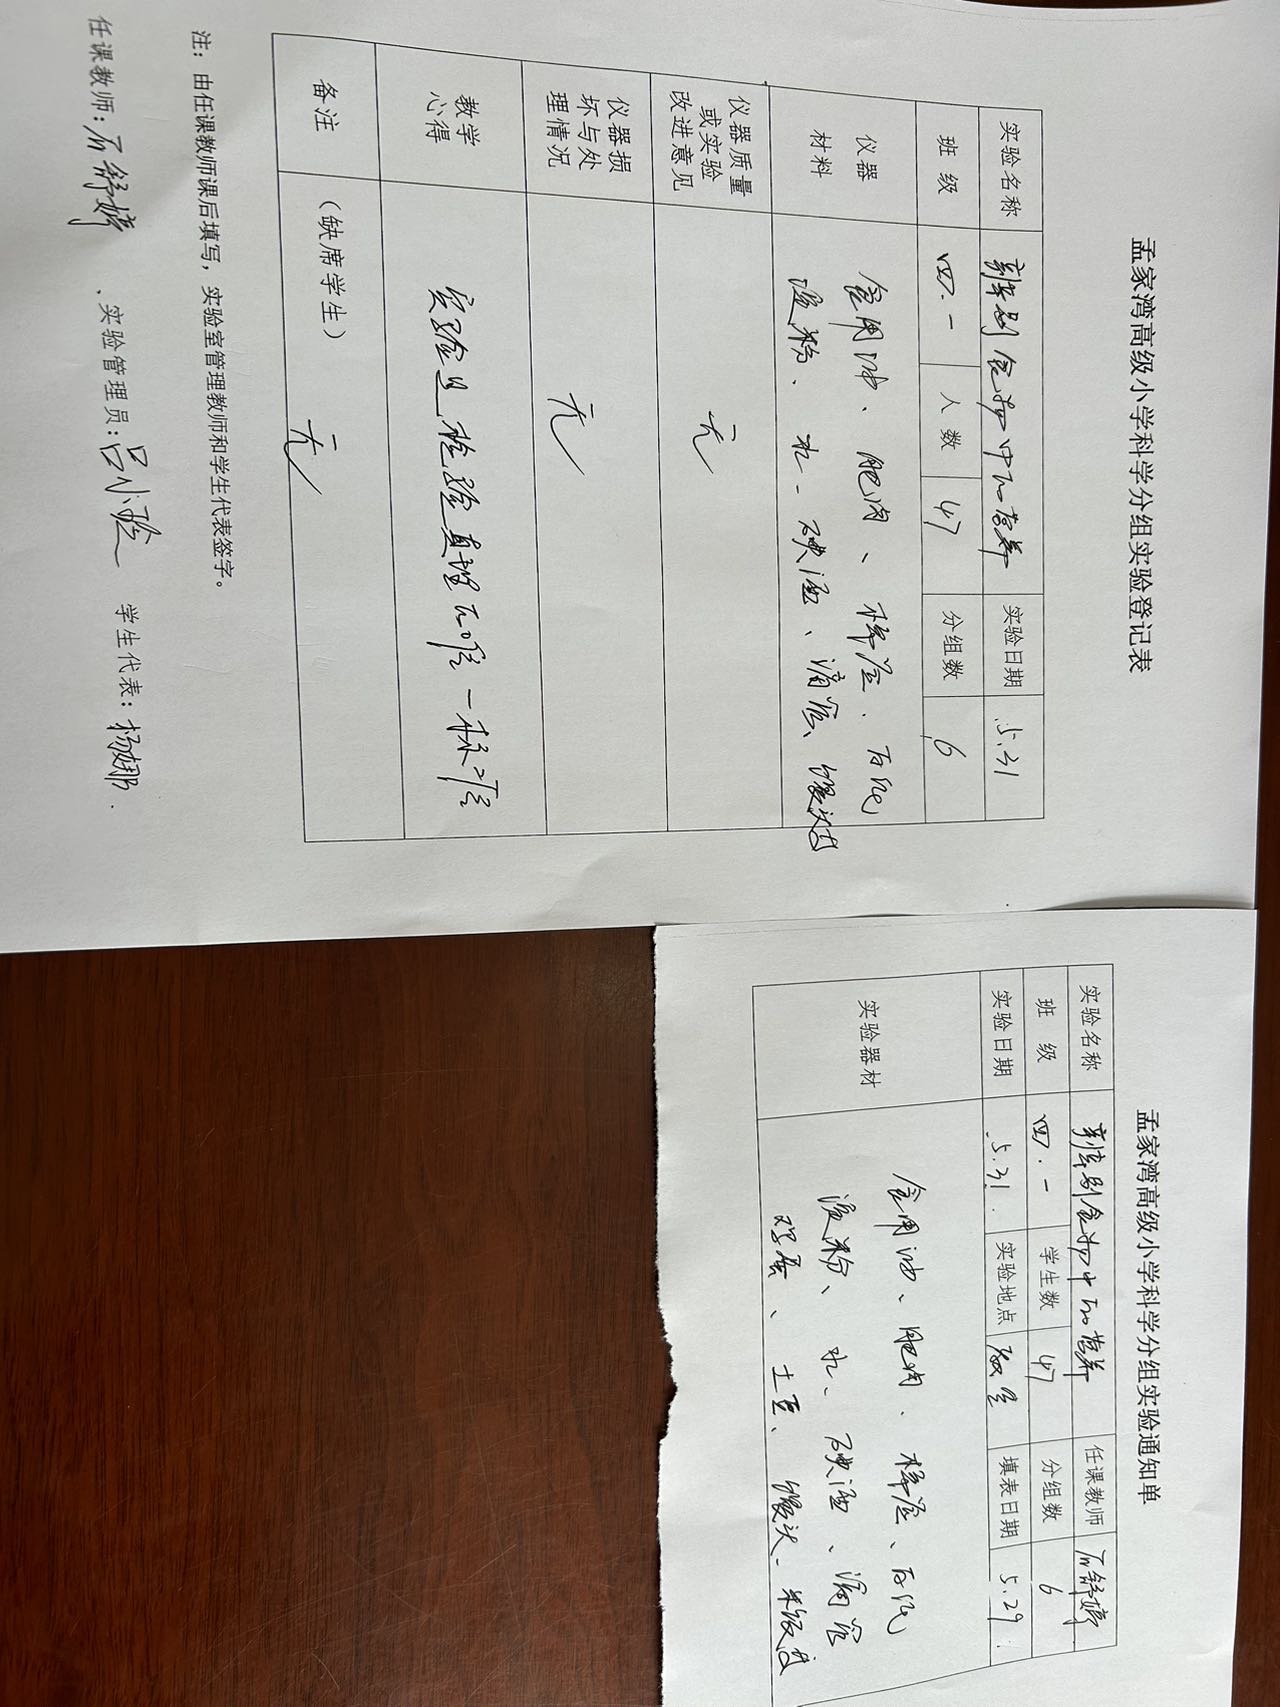 孟家湾高级小学科学分组实验登记表
实验名称 辨别食物中的营养 实验日期 5.31
班 级 四.一 人 数 47 分组数 6
仪器
材料
食用油、肥肉、样签、白纸
淀粉、水、碘酒、滴管、馒头片
仪器质量
或实验
改进意见
无
仪器损
坏与处
理情况
无
教学
心得
实验是检验真理的唯一标准
备注 (缺席学生) 无
注：由任课教师课后填写，实验室管理教师和学生代表签字。
任课教师：石舒婷 、实验管理员：吕小玲 学生代表：杨娜.
孟家湾高级小学科学分组实验通知单
实验名称 辨别食物中的营养 任课教师 石舒婷
班 级 四.一 学生数 47 分组数 6
实验日期 5.31. 实验地点 教室 填表日期 5.29.
实验器材
食用油、肥肉、样签、白纸
淀粉、水、碘酒、滴管
鸡蛋、土豆、馒头、米饭